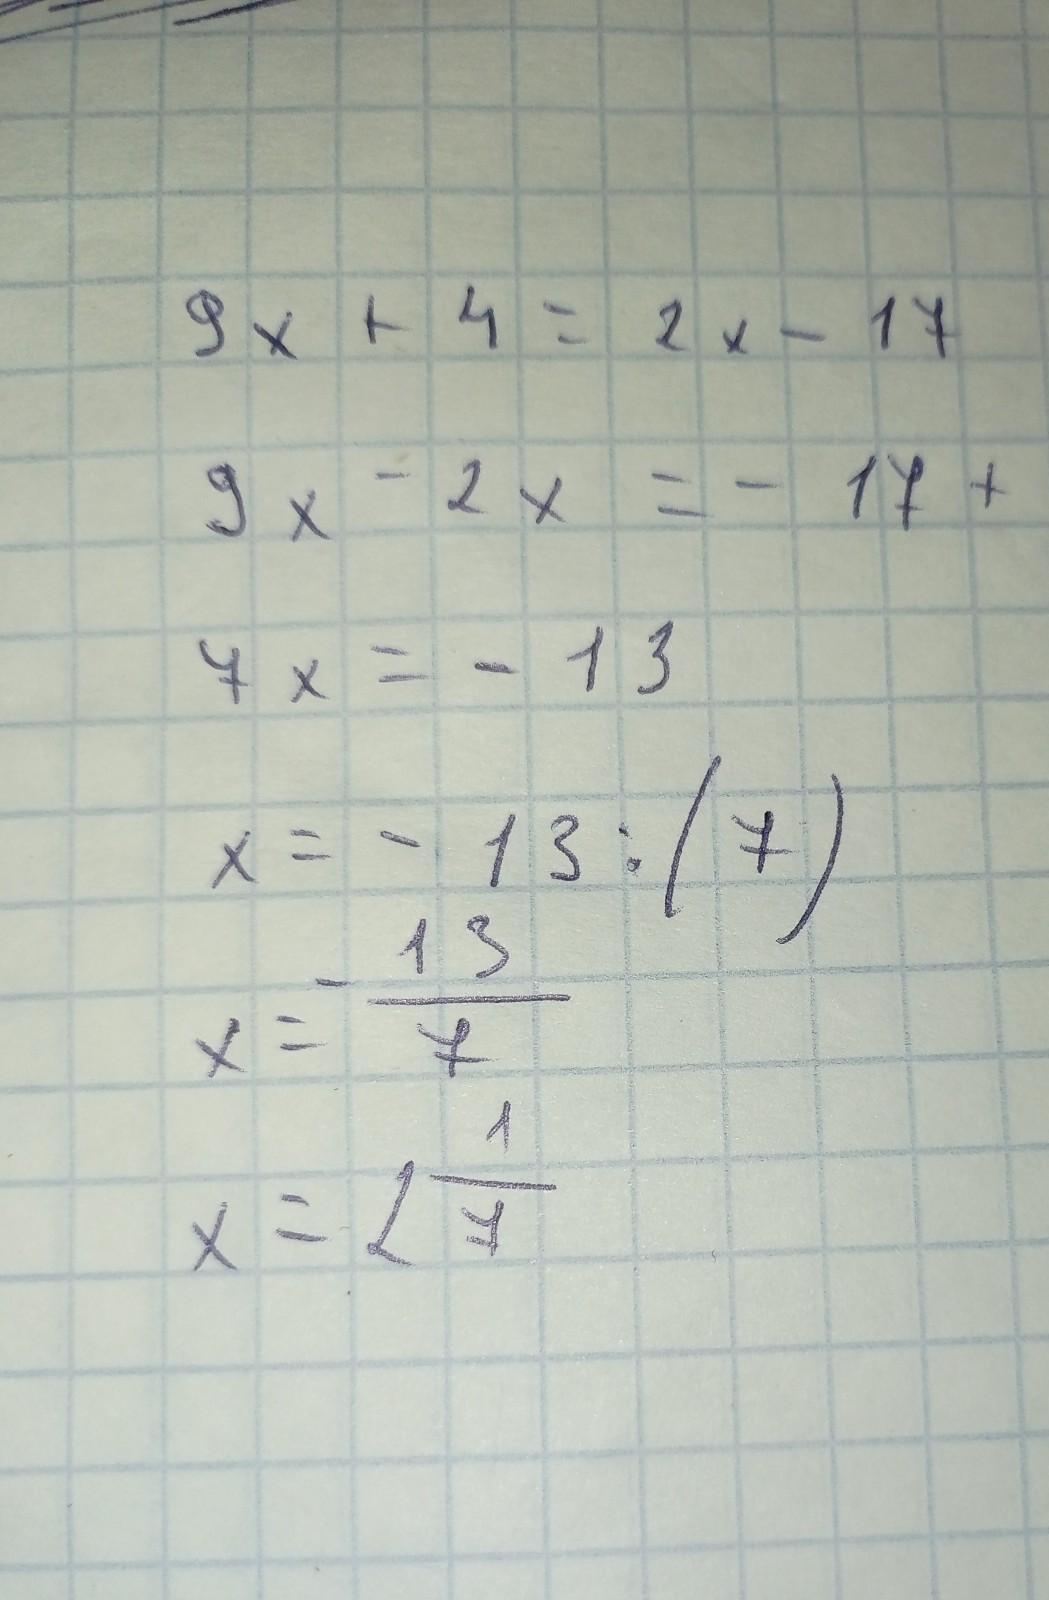 9x + 4 = 2x - 17
9x - 2x = - 17 +
7x = - 13
x = - 13 : (7)
x = - 13/7
x = 2 1/7